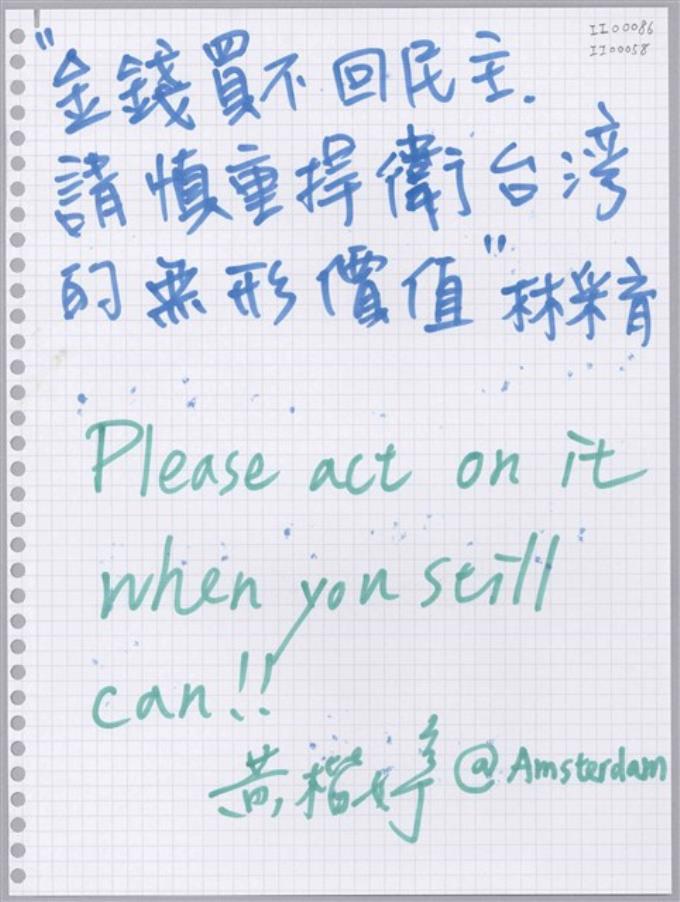 II00086
II00058
"金錢買不回民主.
請慎重捍衛台湾
的無形價值"林采育
Please act on it
when you still
can!!
黃楷婷 @Amsterdam